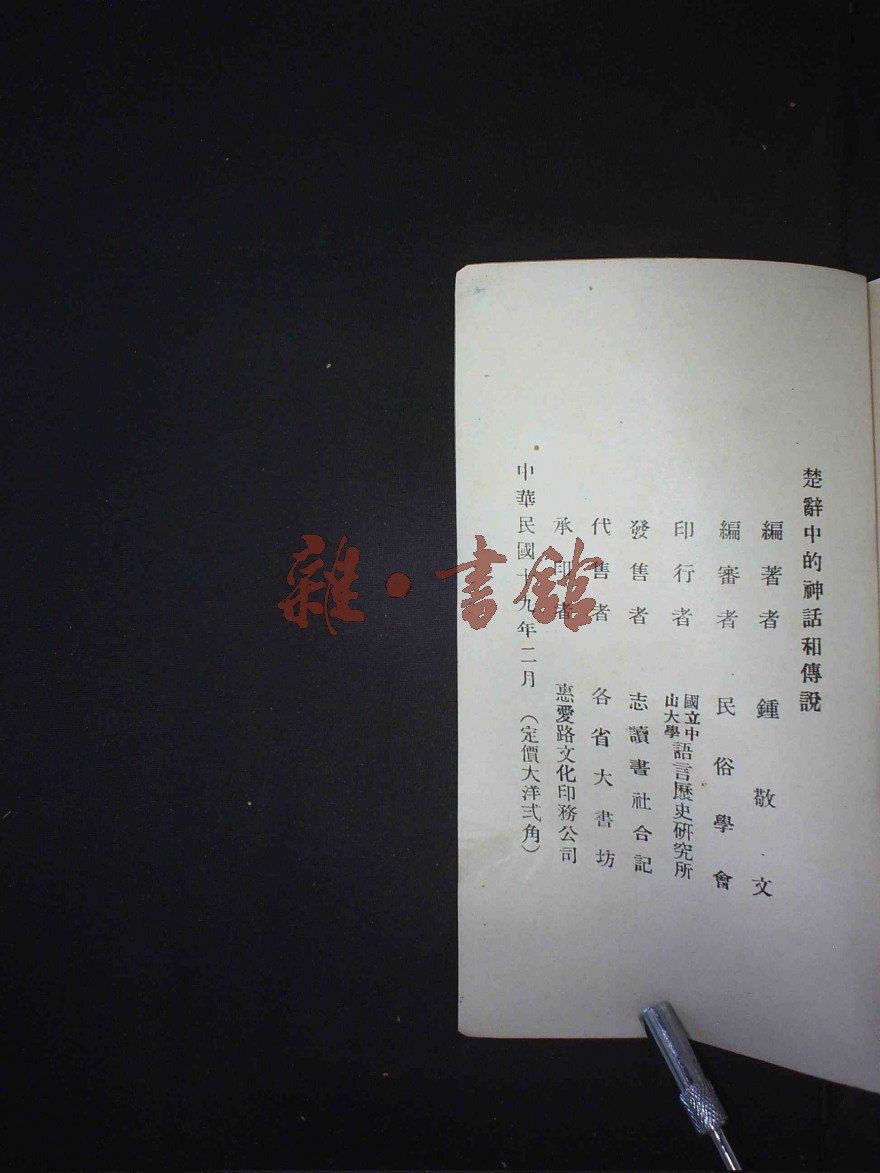 楚辭中的神話和傳說
編著者 鍾敬文
編審者 民俗學會
印行者 國立中山大學語言歷史研究所
發售者 志讀書社合記
代售者 各省大書坊
承印者 惠愛路文化印務公司
中華民國十九年二月 (定價大洋弍角)
雜·書館